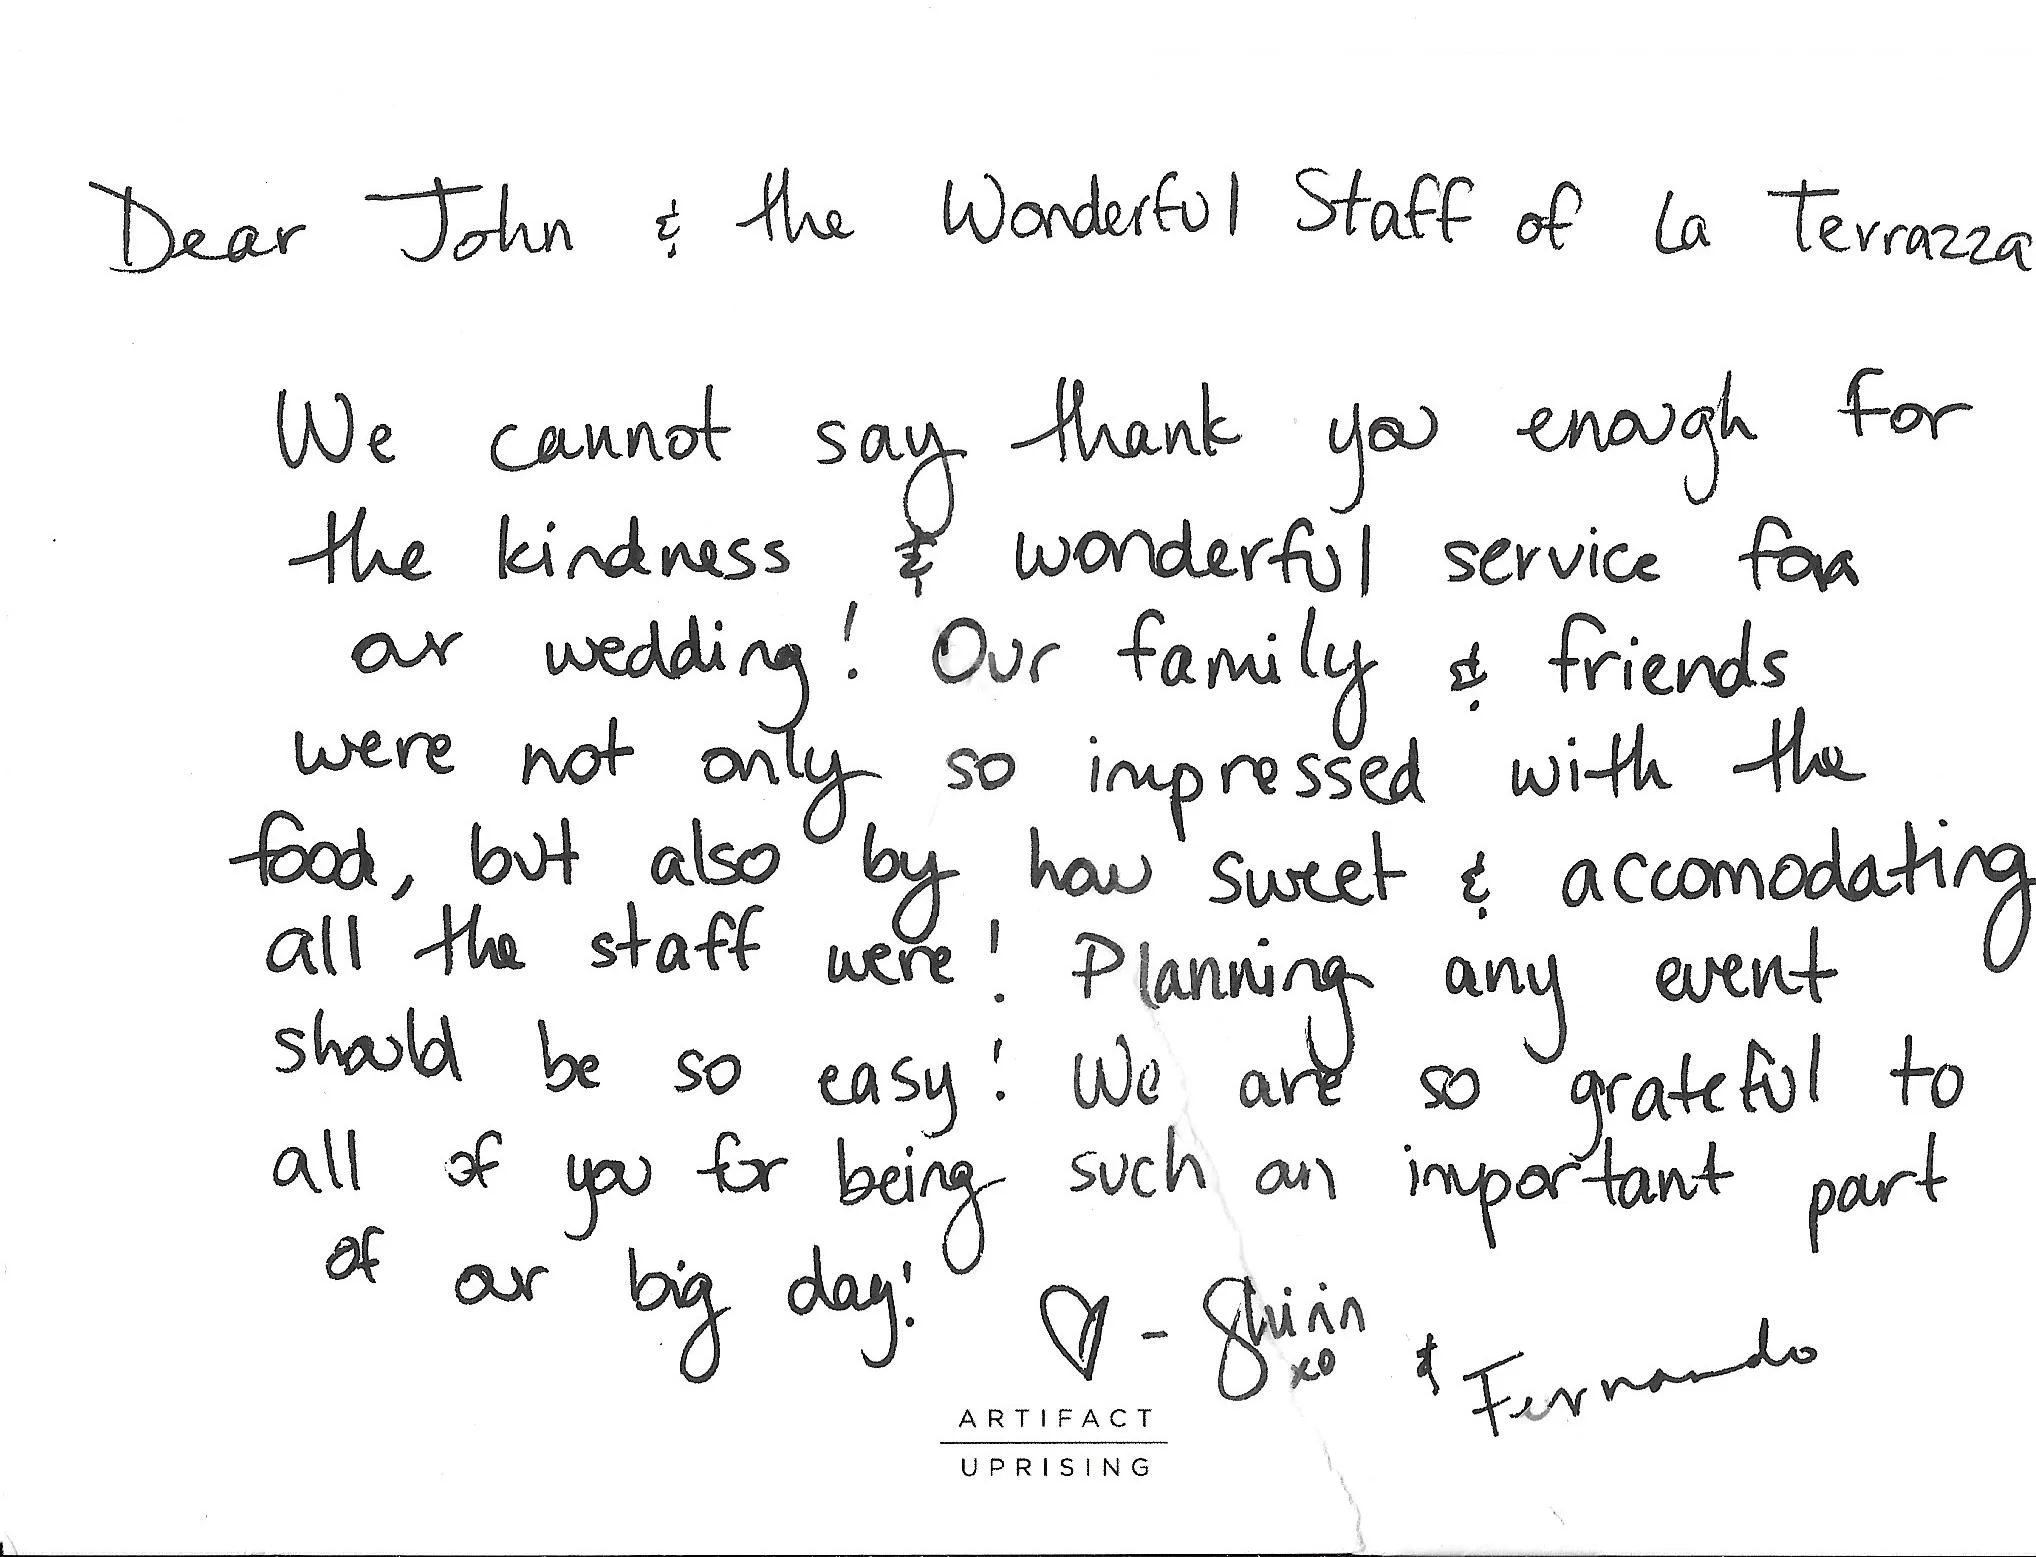 Dear John & the Wonderful Staff of La Terrazza
We cannot say thank you enough for
the kindness & wonderful service for
our wedding! Our family & friends
were not only so impressed with the
food, but also by how sweet & accomodating
all the staff were! Planning any event
should be so easy! We are so grateful to
all of you for being such an important part
of our big day!
♡ - Shirin & Fernando
xo
ARTIFACT
UPRISING